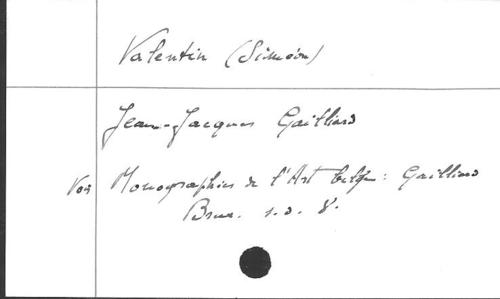 Valentin (Siméon)
Jean-Jacques Gailliard
Voir Monographies de l'Art belge: Gailliard
Brux. s.d. 8°.